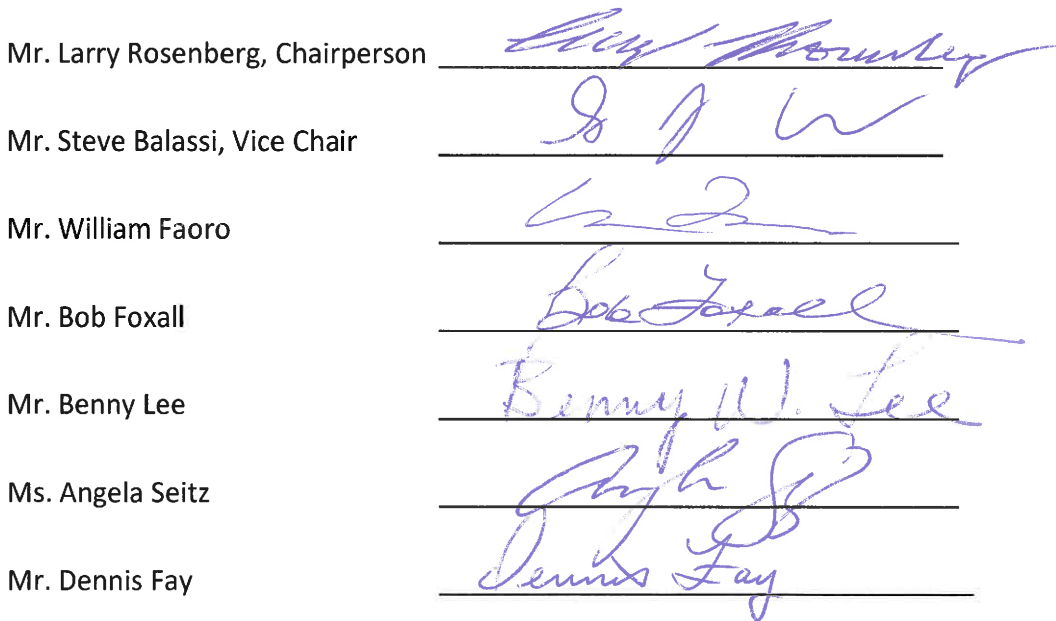 Mr. Larry Rosenberg, Chairperson
Mr. Steve Balassi, Vice Chair
Mr. William Faoro
Mr. Bob Foxall Bob Foxall
Mr. Benny Lee Benny W. Lee
Ms. Angela Seitz
Mr. Dennis Fay Dennis Fay